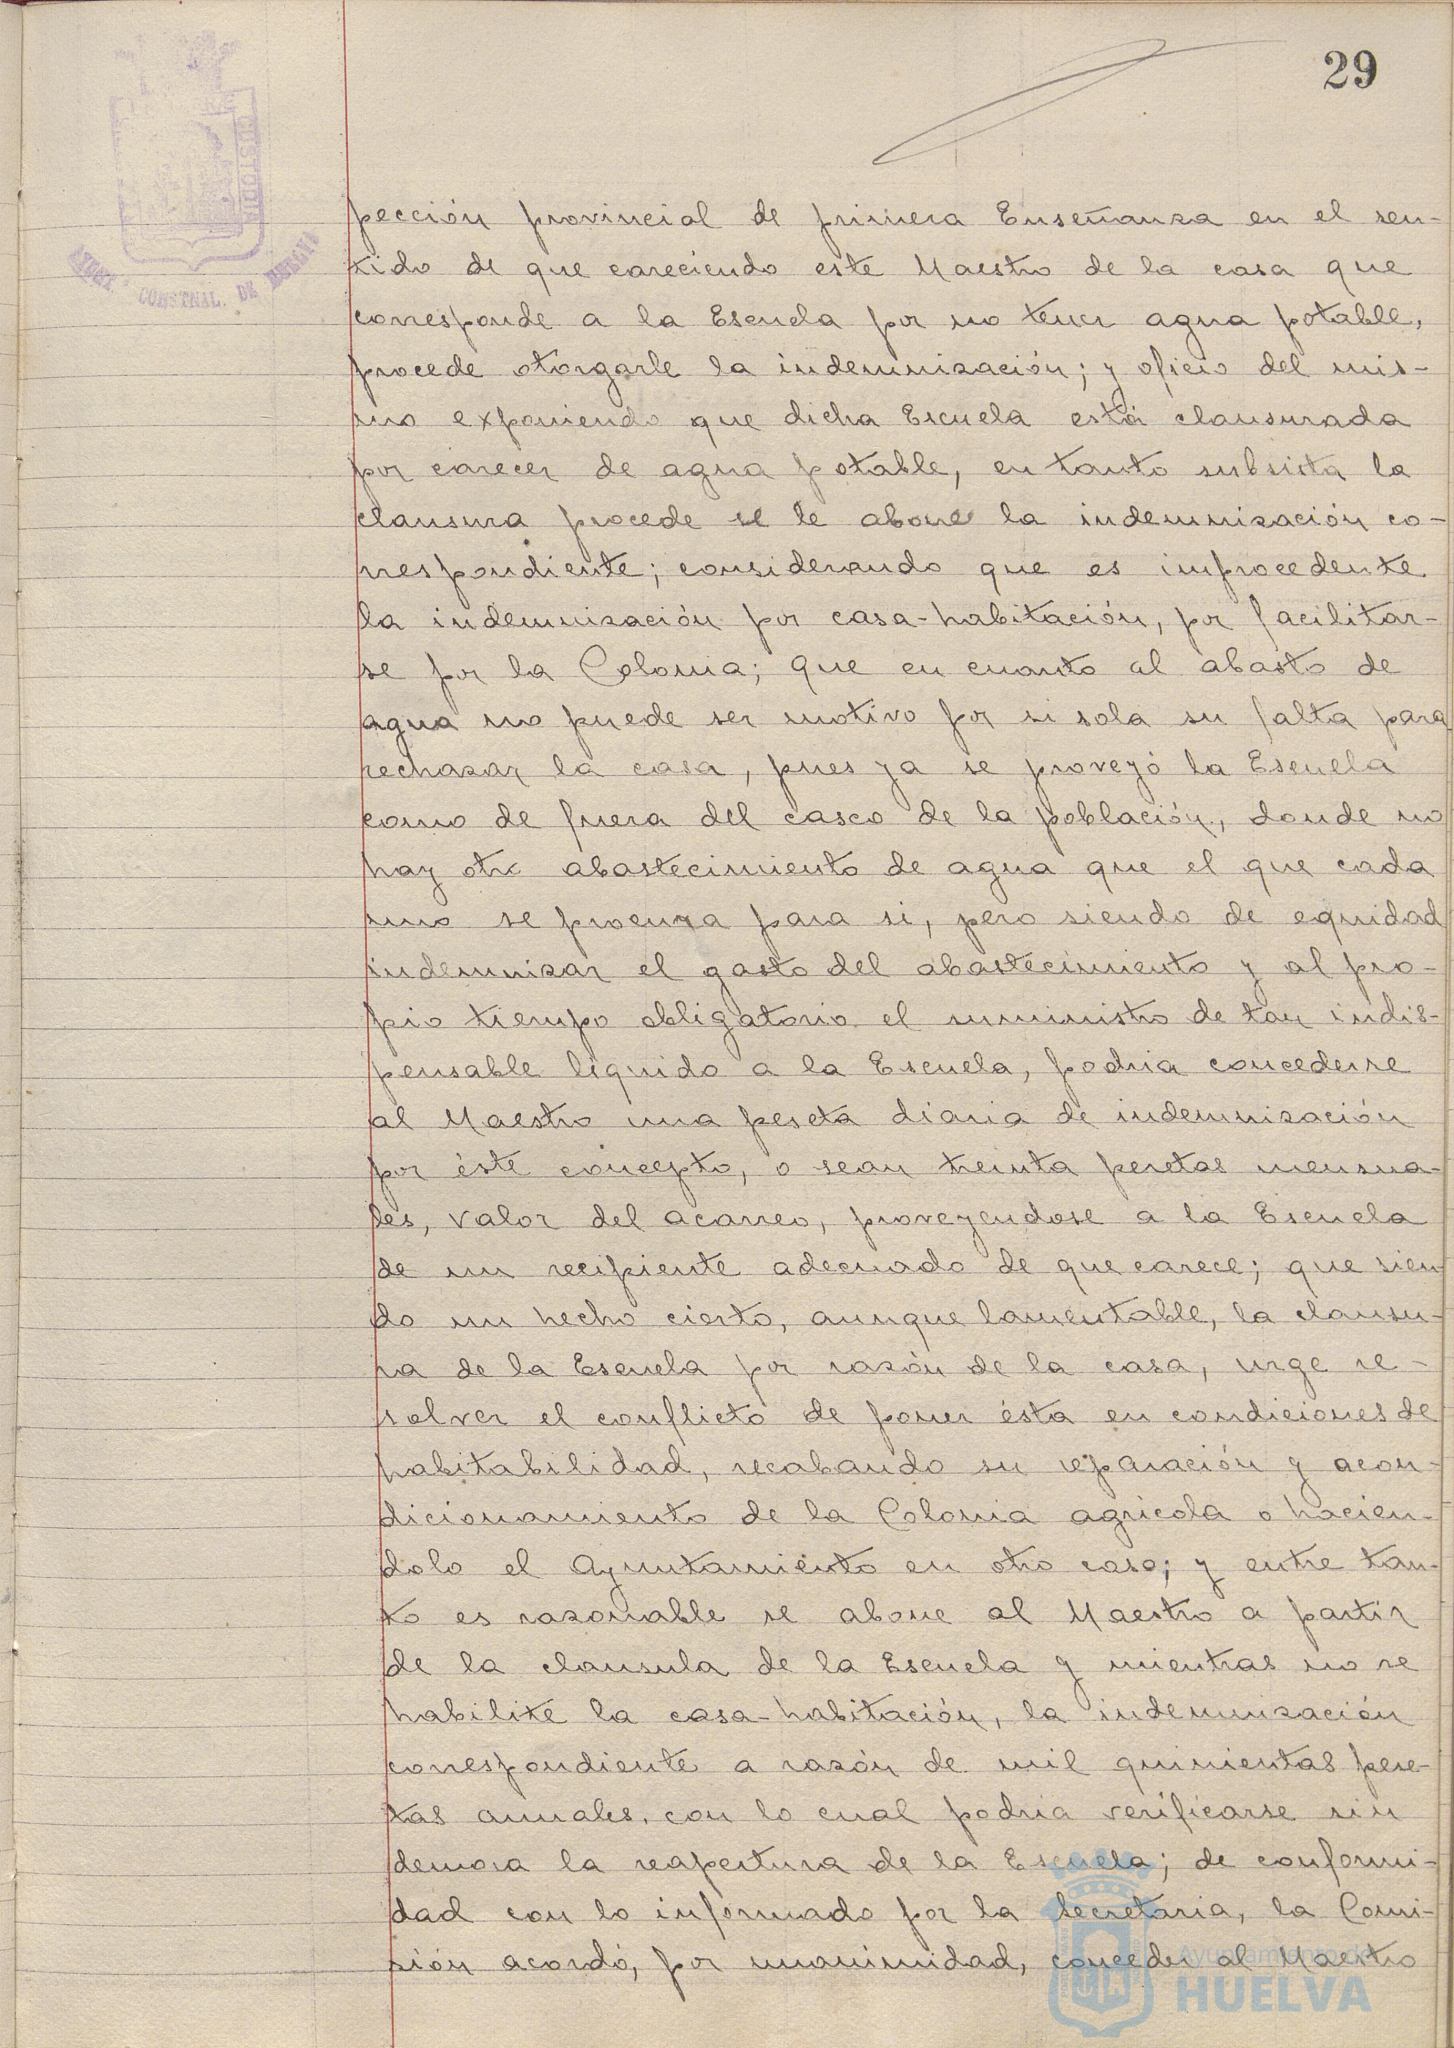 29
CUSTODIA
CONSTNAL. DE HUELVA
pección provincial de primera Enseñanza en el sen-
tido de que careciendo este Maestro de la casa que
corresponde a la Escuela por no tener agua potable,
procede otorgarle la indemnización; y oficio del mis-
mo exponiendo que dicha Escuela está clausurada
por carecer de agua potable, en tanto subsista la
clausura procede se le abone la indemnización co-
rrespondiente; considerando que es improcedente
la indemnización por casa-habitación, por facilitar-
se por la Colonia; que en cuanto al abasto de
agua no puede ser motivo por si sola su falta para
rechazar la casa, pues ya se proveyó la Escuela
como de fuera del casco de la población, donde no
hay otro abastecimiento de agua que el que cada
uno se procura para si, pero siendo de equidad
indemnizar el gasto del abastecimiento y al pro-
pio tiempo obligatorio el suministro de tan indis-
pensable líquido a la Escuela, podria concederse
al Maestro una peseta diaria de indemnización
por éste concepto, o sean treinta pesetas mensua-
les, valor del acarreo, proveyendose a la Escuela
de un recipiente adecuado de que carece; que sien
do un hecho cierto, aunque lamentable, la clausu-
ra de la Escuela por razón de la casa, urge re-
solver el conflicto de poner ésta en condiciones de
habitabilidad, recabando su reparación y acon-
dicionamiento de la Colonia agricola o hacien-
dolo el Ayuntamiento en otro caso; y entre tan-
to es razonable se abone al Maestro a partir
de la clausula de la Escuela y mientras no se
habilite la casa-habitación, la indemnización
correspondiente a razón de mil quinientas pese-
tas anuales, con lo cual podria verificarse sin
demora la reapertura de la Escuela; de conformi-
dad con lo informado por la Secretaria, la Comi-
sión acordó, por unanimidad, conceder al Maestro
Ayuntamiento de
HUELVA